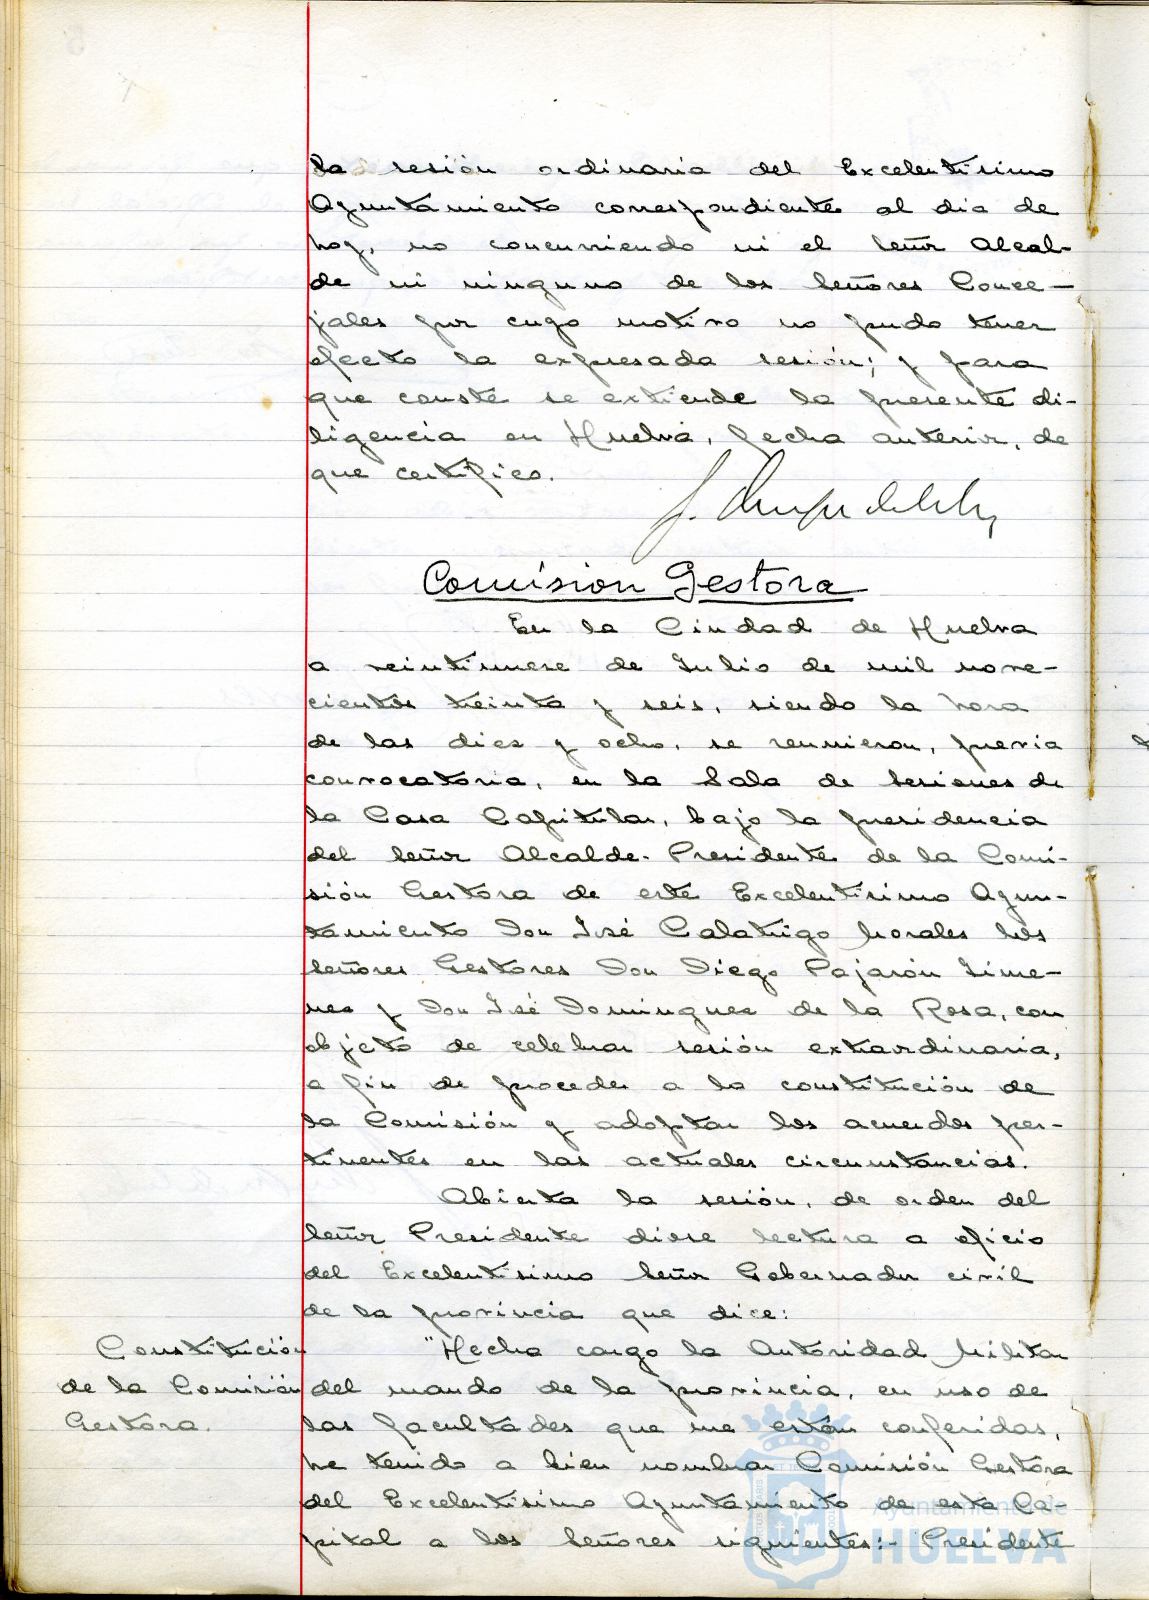 la sesión ordinaria del Excelentísimo
Ayuntamiento correspondiente al dia de
hoy, no concurriendo ni el Señor Alcal-
de ni ninguno de los Señores Conce-
jales por cuyo motivo no pudo tener
efecto la expresada sesión; y para
que conste se extiende la presente di-
ligencia en Huelva, fecha anterior, de
que certifico.
Comisión Gestora
En la Ciudad de Huelva
a veintinueve de Julio de mil nove-
cientos treinta y seis, siendo la hora
de las diez y ocho, se reunieron, previa
convocatoria, en la Sala de Sesiones de
la Casa Capitular, bajo la presidencia
del Señor Alcalde-Presidente de la Comi-
sión Gestora de este Excelentísimo Ayun-
tamiento Don José Calatrigo Morales los
Señores Gestores Don Diego Pajarón Jime-
nez y Don José Dominguez de la Rosa, con
objeto de celebrar sesión extraordinaria,
a fin de proceder a la constitución de
la Comisión y adoptar los acuerdos per-
tinentes en las actuales circunstancias.
Abierta la sesión, de orden del
Señor Presidente diose lectura a oficio
del Excelentísimo Señor Gobernador civil
de la provincia que dice:
Constitución
de la Comisión
Gestora.
"Hecho cargo la Autoridad Militar
del mando de la provincia, en uso de
las facultades que me están conferidas,
he tenido a bien nombrar Comisión Gestora
del Excelentísimo Ayuntamiento de esta Ca-
pital a los Señores siguientes:- Presidente
Ayuntamiento de
HUELVA